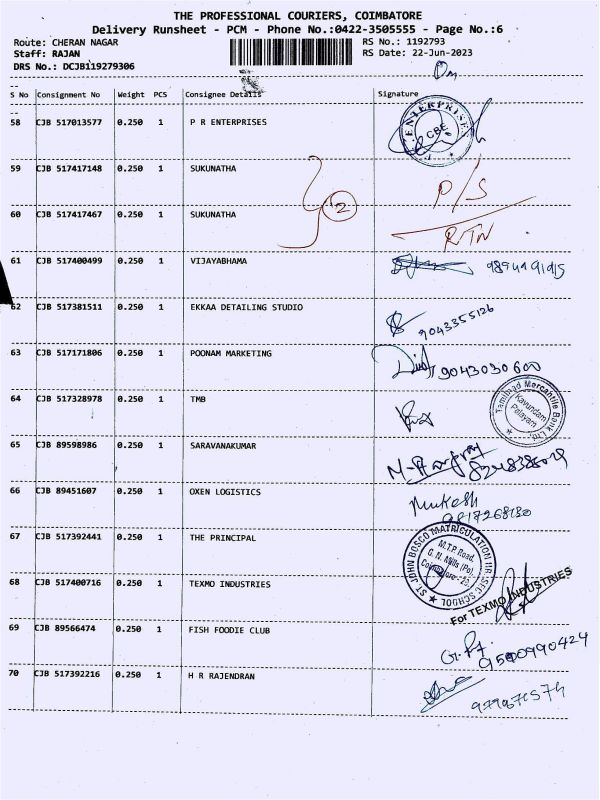 THE PROFESSIONAL COURIERS, COIMBATORE
Delivery Runsheet - PCM - Phone No.:0422-3505555 - Page No.:6
Route: CHERAN NAGAR RS No.: 1192793
Staff: RAJAN RS Date: 22-Jun-2023
DRS No.: DCJB119279306
--
S No Consignment No Weight PCS Consignee Details Signature
--
58 CJB 517013577 0.250 1 P R ENTERPRISES
ENTERPRISES
CBE
59 CJB 517417148 0.250 1 SUKUNATHA P/S
2
60 CJB 517417467 0.250 1 SUKUNATHA RTN
61 CJB 517400499 0.250 1 VIJAYABHAMA
62 CJB 517381511 0.250 1 EKKAA DETAILING STUDIO 9043355126
63 CJB 517171806 0.250 1 POONAM MARKETING 9043030600
64 CJB 517328978 0.250 1 TMB
Tamilnad Mercantile Bank Ltd.
Kavundam
Palayam
65 CJB 89598986 0.250 1 SARAVANAKUMAR
66 CJB 89451607 0.250 1 OXEN LOGISTICS Mukesh
67 CJB 517392441 0.250 1 THE PRINCIPAL
ST. JOHN BOSCO MATRICULATION HR. SEC SCHOOL
M.T.P. Road,
G. N. Mills (Po)
Coimbatore - 29
68 CJB 517400716 0.250 1 TEXMO INDUSTRIES For TEXMO INDUSTRIES
69 CJB 89566474 0.250 1 FISH FOODIE CLUB 9500990424
70 CJB 517392216 0.250 1 H R RAJENDRAN